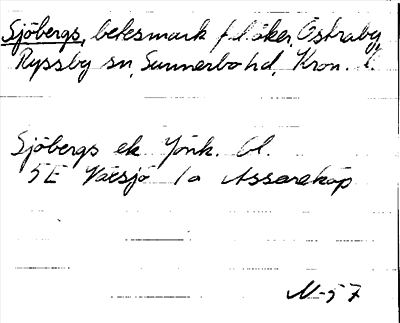 Sjöbergs, betesmark f.d. åker, Östraby,
Ryssby sn, Sunnerbo hd, Kron. l.
Sjöbergs ek Jönk. bl.
5E Växsjö 1a Assarekåp
M-57